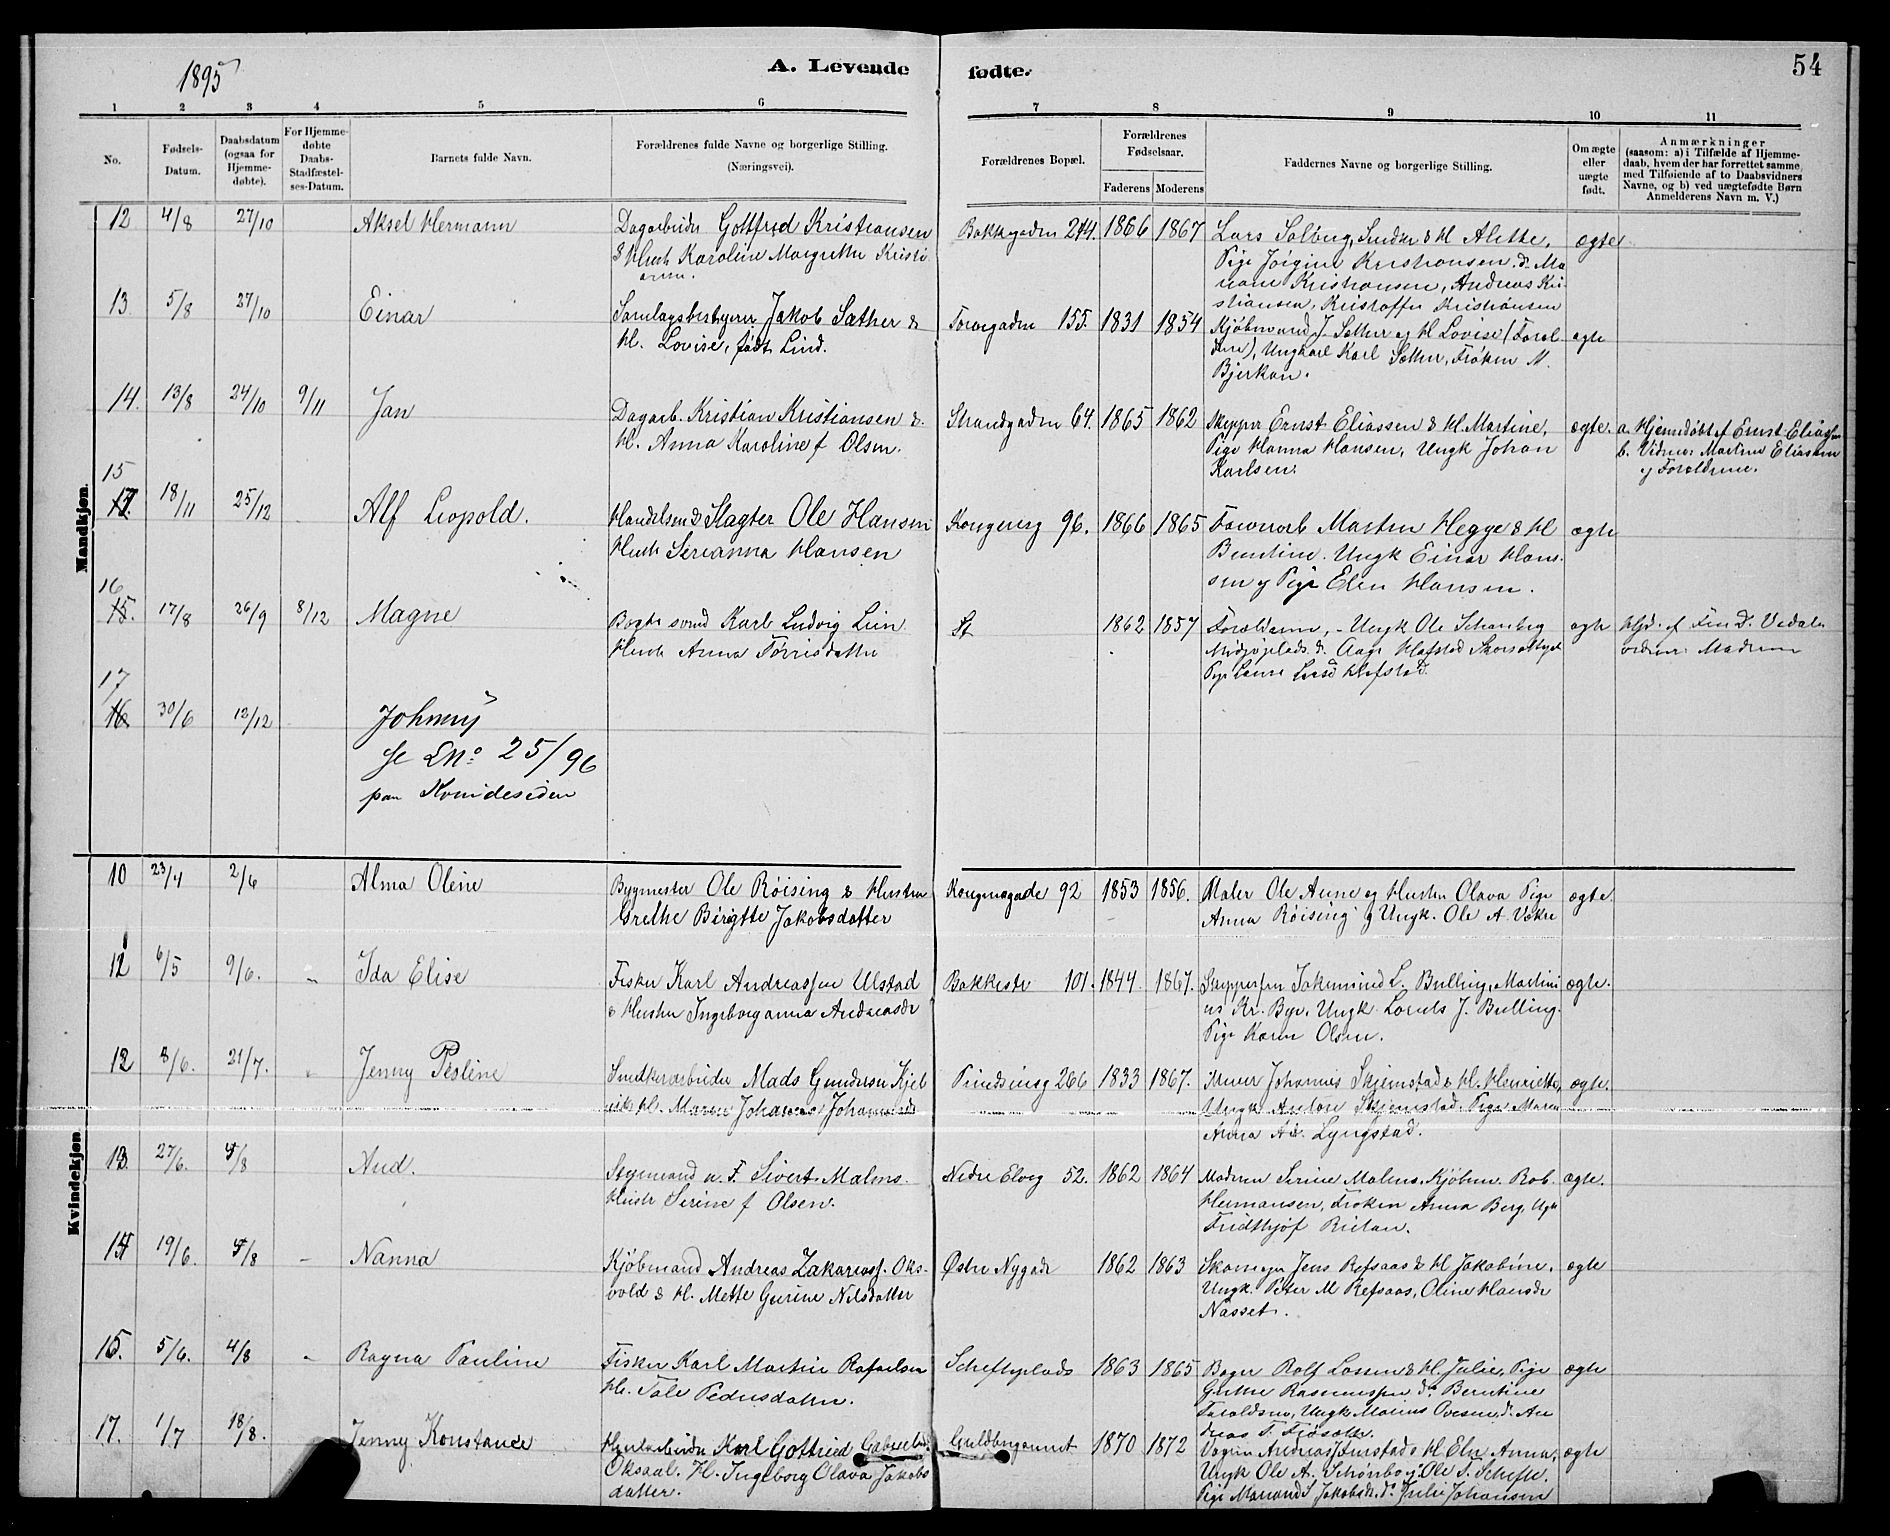 1895
A. Levende fødte.
54
1 2 3 4 5 6 7 8 9 10 11
No.
Fødsels-Datum.
Daabsdatum (ogsaa for Hjemme-døbte).
For Hjemme-døbte Daabs-Stadfæstel-ses-Datum.
Barnets fulde Navn.
Forældrenes fulde Navne og borgerlige Stilling. (Næringsvei).
Forældrenes Bopæl.
Forældrenes Fødselsaar.
Faderens Moderens
Faddernes Navne og borgerlige Stilling.
Om ægte eller uægte født.
Anmærkninger (saasom: a) i Tilfælde af Hjemme-daab, hvem der har forrettet samme, med Tilføiende af to Daabsvidners Navne, og b) ved uægtefødte Børn Anmelderens Navn m. V.)
Mandkjøn.
12 4/8 27/10 Aksel Hermann
Dagarbeider Gottfred Kristiansen
& Hustr Karoline Margrethe Kristi
ansen.
Bakkegaden 244. 1866 1867
Lars Solberg, Snedker & H Alette,
Pige Jørgine Kristiansen. do Ma
riane Kristiansen, Andreas Kri
stiansen, Kristoffer Kristiansen
ægte
13 5/8 27/10 Einar
Samlagsbestyrer Jakob Sæther &
H. Lovise, født Lind.
Torvegaden 155. 1831 1854
Kjøbmand J Sæther og H Lovise (Foræl
drene), Ungkarl Karl Sæther, Frøken M.
Bjerkan.
ægte
14. 13/8 24/10 9/11 Jan
Dagarb. Kristian Kristiansen &
H. Anna Karoline f Olsen.
Strandgaden 64. 1865 1862
Skipper Ernst Eliassen & H. Martine,
Pige Hanna Hansen, Ungk Johan
Karlsen.
ægte.
a. Hjemdøbt af Ernst Eliassen
b. Vidner: Martine Eliassen
og Forældrene.
15 18/11 25/12 Alf Leopold.
Handelsmd & Slagter Ole Hansen
Hustr Serianna Hansen
Kongensg 96. 1866 1865
Farverarb Martin Hegge & H
Berntine. Ungk Einar Han-
sen og Pige Elen Hansen.
ægte
16 17/8 26/9 8/12 Magne
Karl Ludvig Lien
Hustr Anna Torrisdatter
1862 1857
Forældrene, - Ungk Ole Schanberg
Hafstad.
ægte
Hjd. af
17 30/6 12/12 Johnny
se LNo 25/96
paa Kvindesiden
Kvindekjøn.
10 23/4 2/6 Alma Oleine
Bygmester Ole Røising & Hustru
Grethe Birgitte Jakobsdatter
Kongensgade 92 1853 1856.
Maler Ole Aune og Hustru Olava Pige
Anna Røising og Ungk. Ole A. Vekre
ægte.
12 6/5 9/6. - Ida Elise
Fisker Karl Andreassen Ulstad
& Hustru Ingeborganna Andreasdr
Bakkestr 101. 1844 1867.
Skipperfru Jakomine L. Bulling, Martin
us Kr. Bye, Ungk. Lorents J. Bulling.
Pige Karen Olsen.
ægte.
12 8/6. 21/7. Jenny Pesline
Snedkerarbeider Mads Gundersen Kjel
vik H. Maren Johanna Johannesdr
Prindsensg 266 1833 1867.
Murer Johannes Skjemstad & H. Henriette,
Ungk Anton Skjemstad. Pige Maren
Anna Ad. Lyngstad.
ægte.
13. 27/6. 4/8 Aud.
Styrmand u. F. Sivert Malmo.
Hustr Serine f Olsen.
Nedre Elveg 52. 1862 1864
Moderen Serine Malmo. Kjøbm. Rob.
Hermansen, Frøken Anna Berg, Ugk
Fridthjof Rietan.
ægte.
14 19/6. 4/8 - Nanna
Kjøbmand Andreas Zakariasf. Oks-
vold & H. Mette Gurine Nilsdatter
Østre Nygade 1862 1863
Skomager Jens Refsaas & H Jakobine.
Ungk. Peter M Refsaas, Oline Hansdr
Nasset.
ægte
15. 5/6. 4/8 - Ragna Pauline
Fisker Karl Martin Rafaelsen
H. Tale Pedersdatter.
Schefteplads 1863 1865
Bager Rolf Lossen & H. Julie, Pige
Grethe Rasmussen do Berntine
Haraldsen, Ungk Marius Ovesen, do An
dreas T.
ægte
17. 1/7 18/8. Jenny Konstance
Karl Gottfried Gabrielsen
Oksaal. H. Ingeborg Olava Jakobs
datter.
Guldbergaunet 1870 1872
Andreas Finstad & H. Elen Anna,
Ungk Ole A. Schønborg. Ole T. Schefte.
Pige Marianna Jakobsdr. do Julie Johansen
ægte